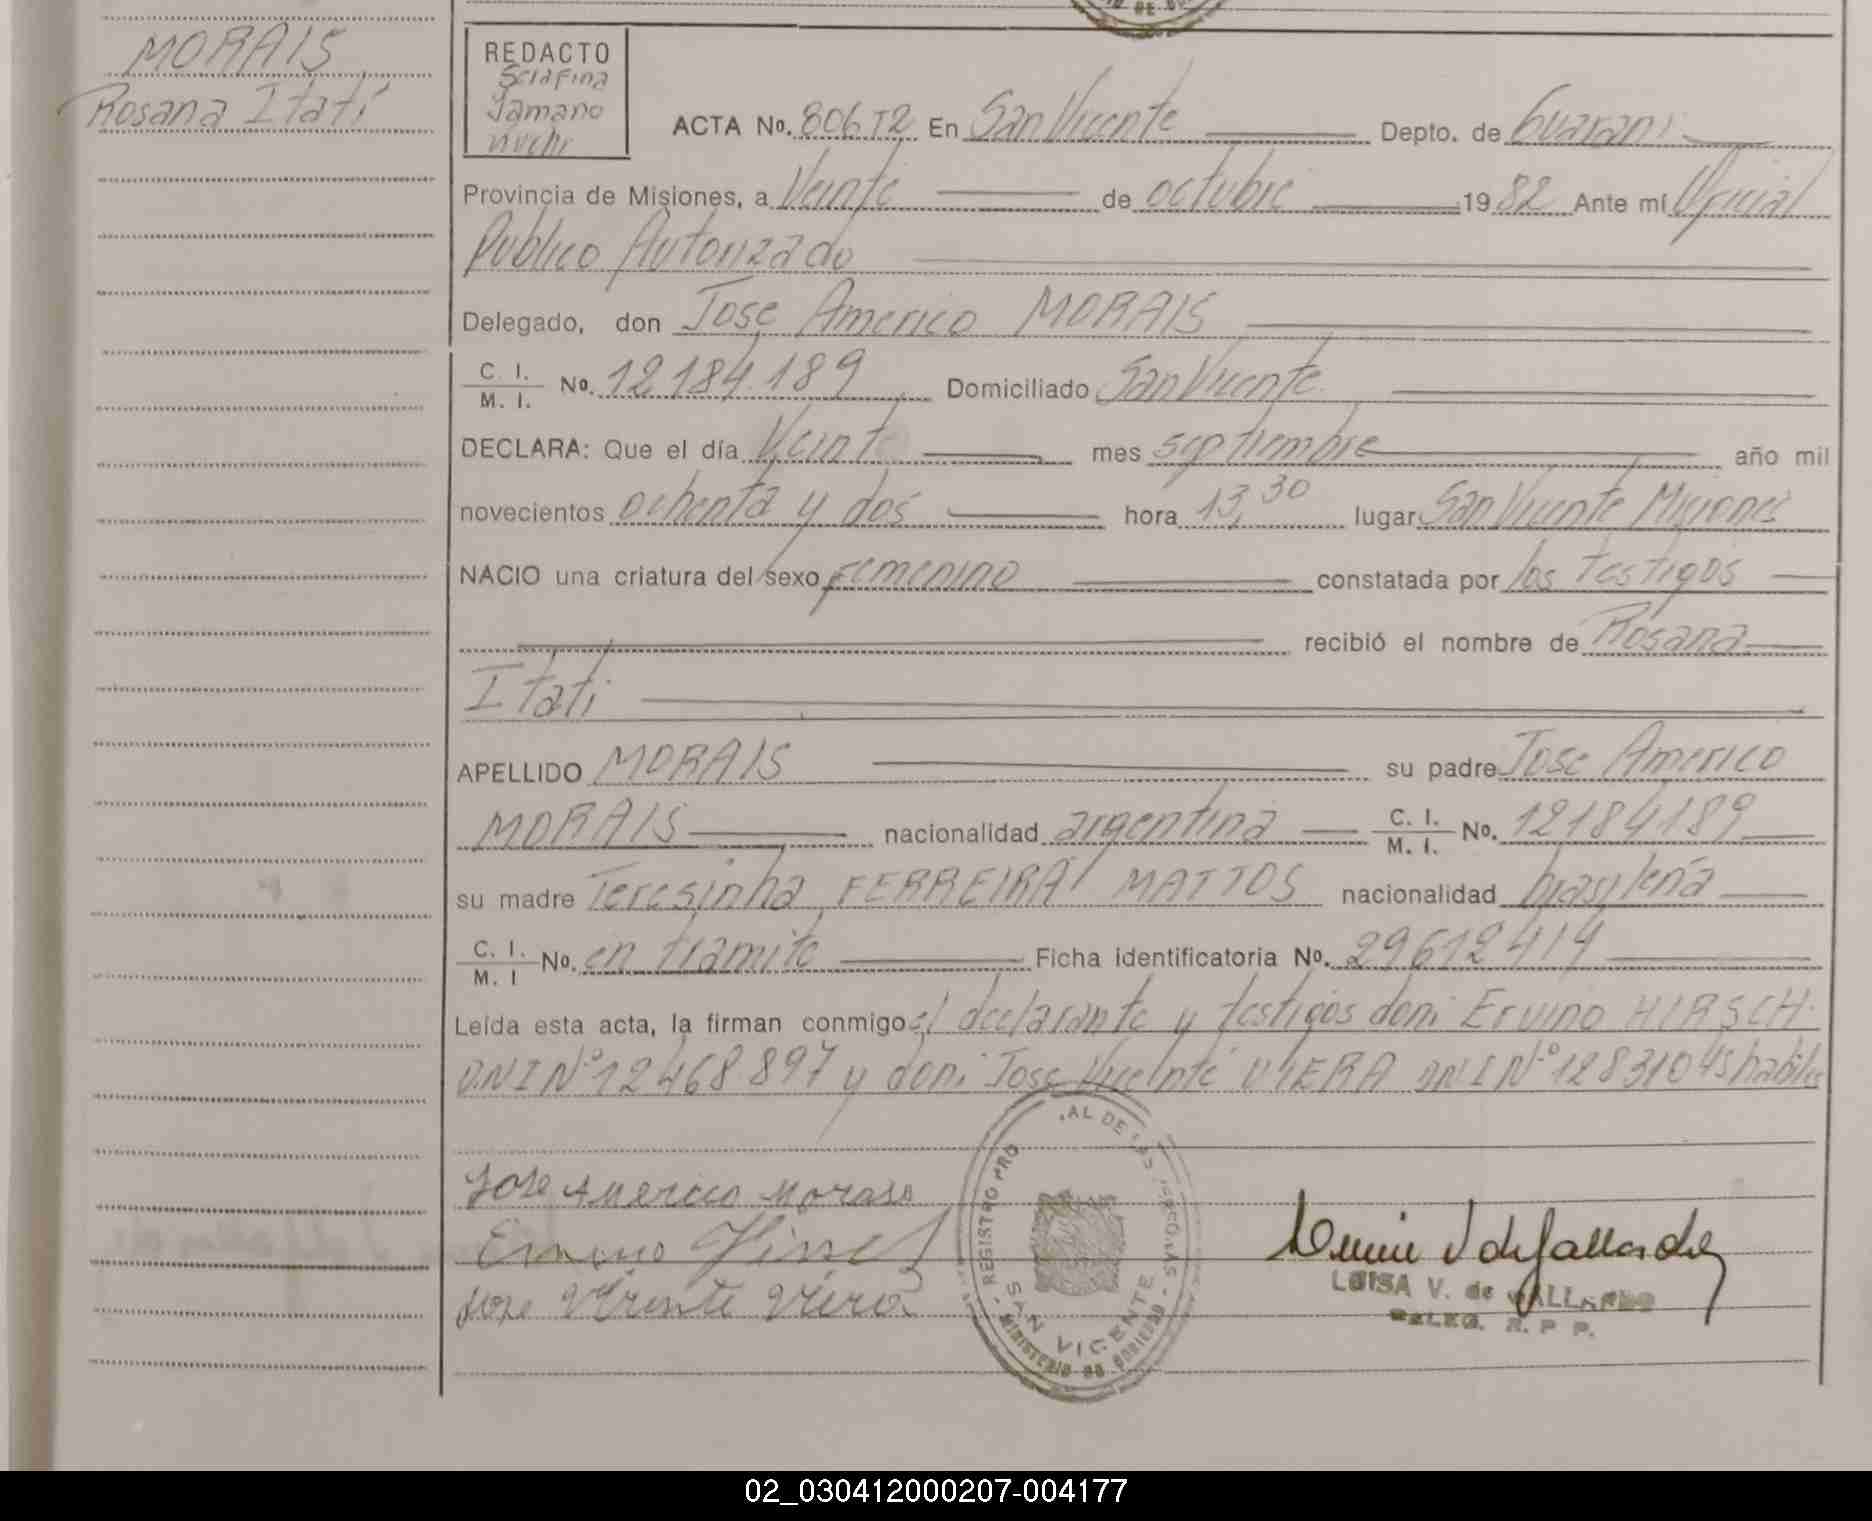 MORAIS
Rosana Itatí
REDACTO
ACTA No. 806 T2 En San Vicente Depto. de Guaraní
Provincia de Misiones, a Veinte de octubre 1982 Ante mí Oficial
Publico Autorizado
Delegado, don Jose Americo MORAIS
C. I.
M. I. No. 12.184.189 Domiciliado San Vicente
DECLARA: Que el día Veinte mes septiembre año mil
novecientos ochenta y dos hora 13,30 lugar San Vicente Misiones
NACIO una criatura del sexo femenino constatada por los testigos
recibió el nombre de Rosana
Itati
APELLIDO MORAIS su padre Jose Americo
MORAIS nacionalidad argentina C. I.
M. I. No. 12184189
su madre Teresinha FERREIRA MATTOS nacionalidad brasileña
C. I.
M. I No. en tramite Ficha identificatoria No. 29612414
Leída esta acta, la firman conmigo el declarante y testigos don: Ervino HIRSCH.
DNI N° 12468897 y don: Jose Vicente VIERA DNI N° 12831045 habiles
Jose Americo Morais
Jose Vicente Viera
REGISTRO PRO AL DE LAS PERSONAS
SAN VICENTE
MINISTERIO DE GOBIERNO
LUISA V. de GALLARDO
DELEG. R. P P.
02_030412000207-004177